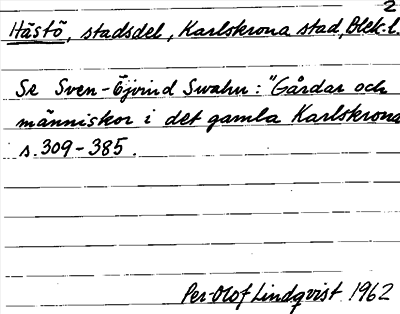 2
Hästö, stadsdel, Karlskrona stad, Blek. l.
Se Sven-Öjvind Swahn: "Gårdar och
människor i det gamla Karlskrona
s. 309-385.
Per-Olof Lindqvist 1962